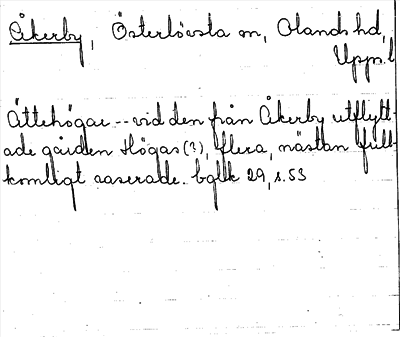 Åkerby, Österlövsta sn, Olands hd,
Uppl.
Ättehögar -- vid den från Åkerby utflytt-
ade gården Högas (?), flera, nästan full-
komligt raserade. bgllk 29, s. 53